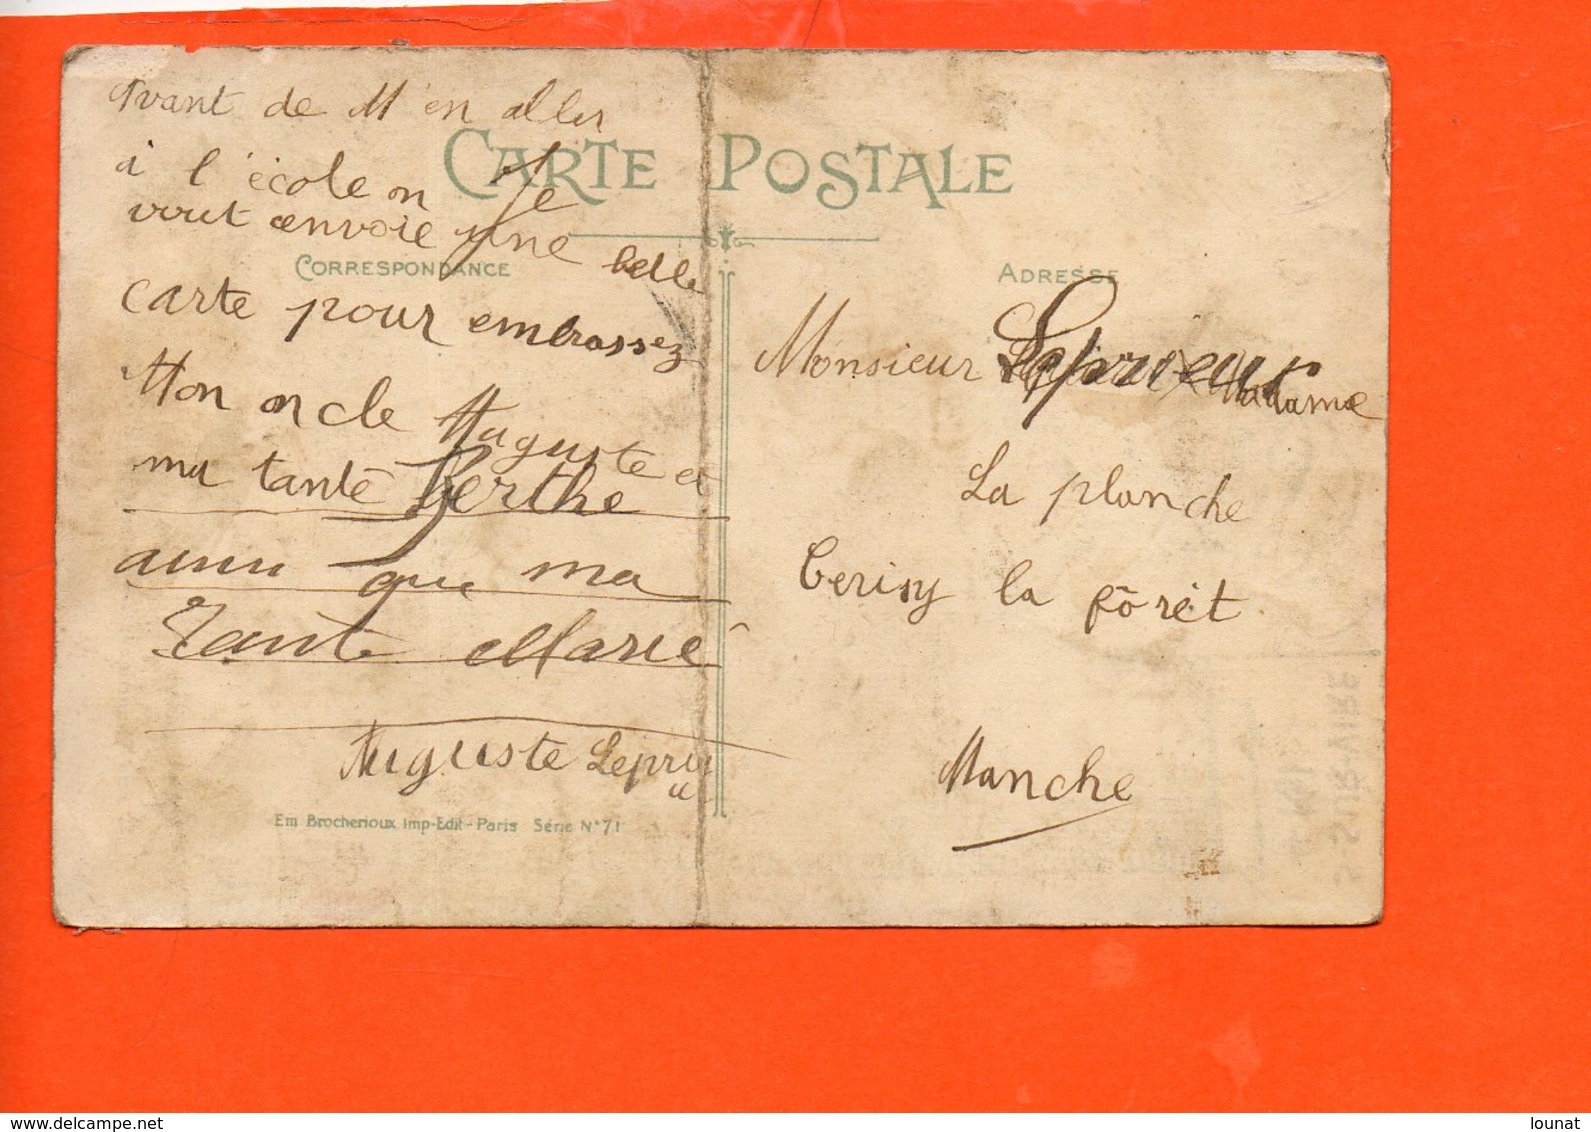 avant de M'en aller
à l'école on Je
vout envoie une belle
carte pour embrassez
Mon oncle Auguste et
ma tante Berthe
aussi que ma
Tante Marie
Auguste Leprieu
CARTE POSTALE
CORRESPONDANCE
ADRESSE
Monsieur Leprieur
Madame
La planche
Cerisy la fôrét
Manche
Em Brocherioux Imp-Edit-Paris Série N°71
delcampe.net
lounat